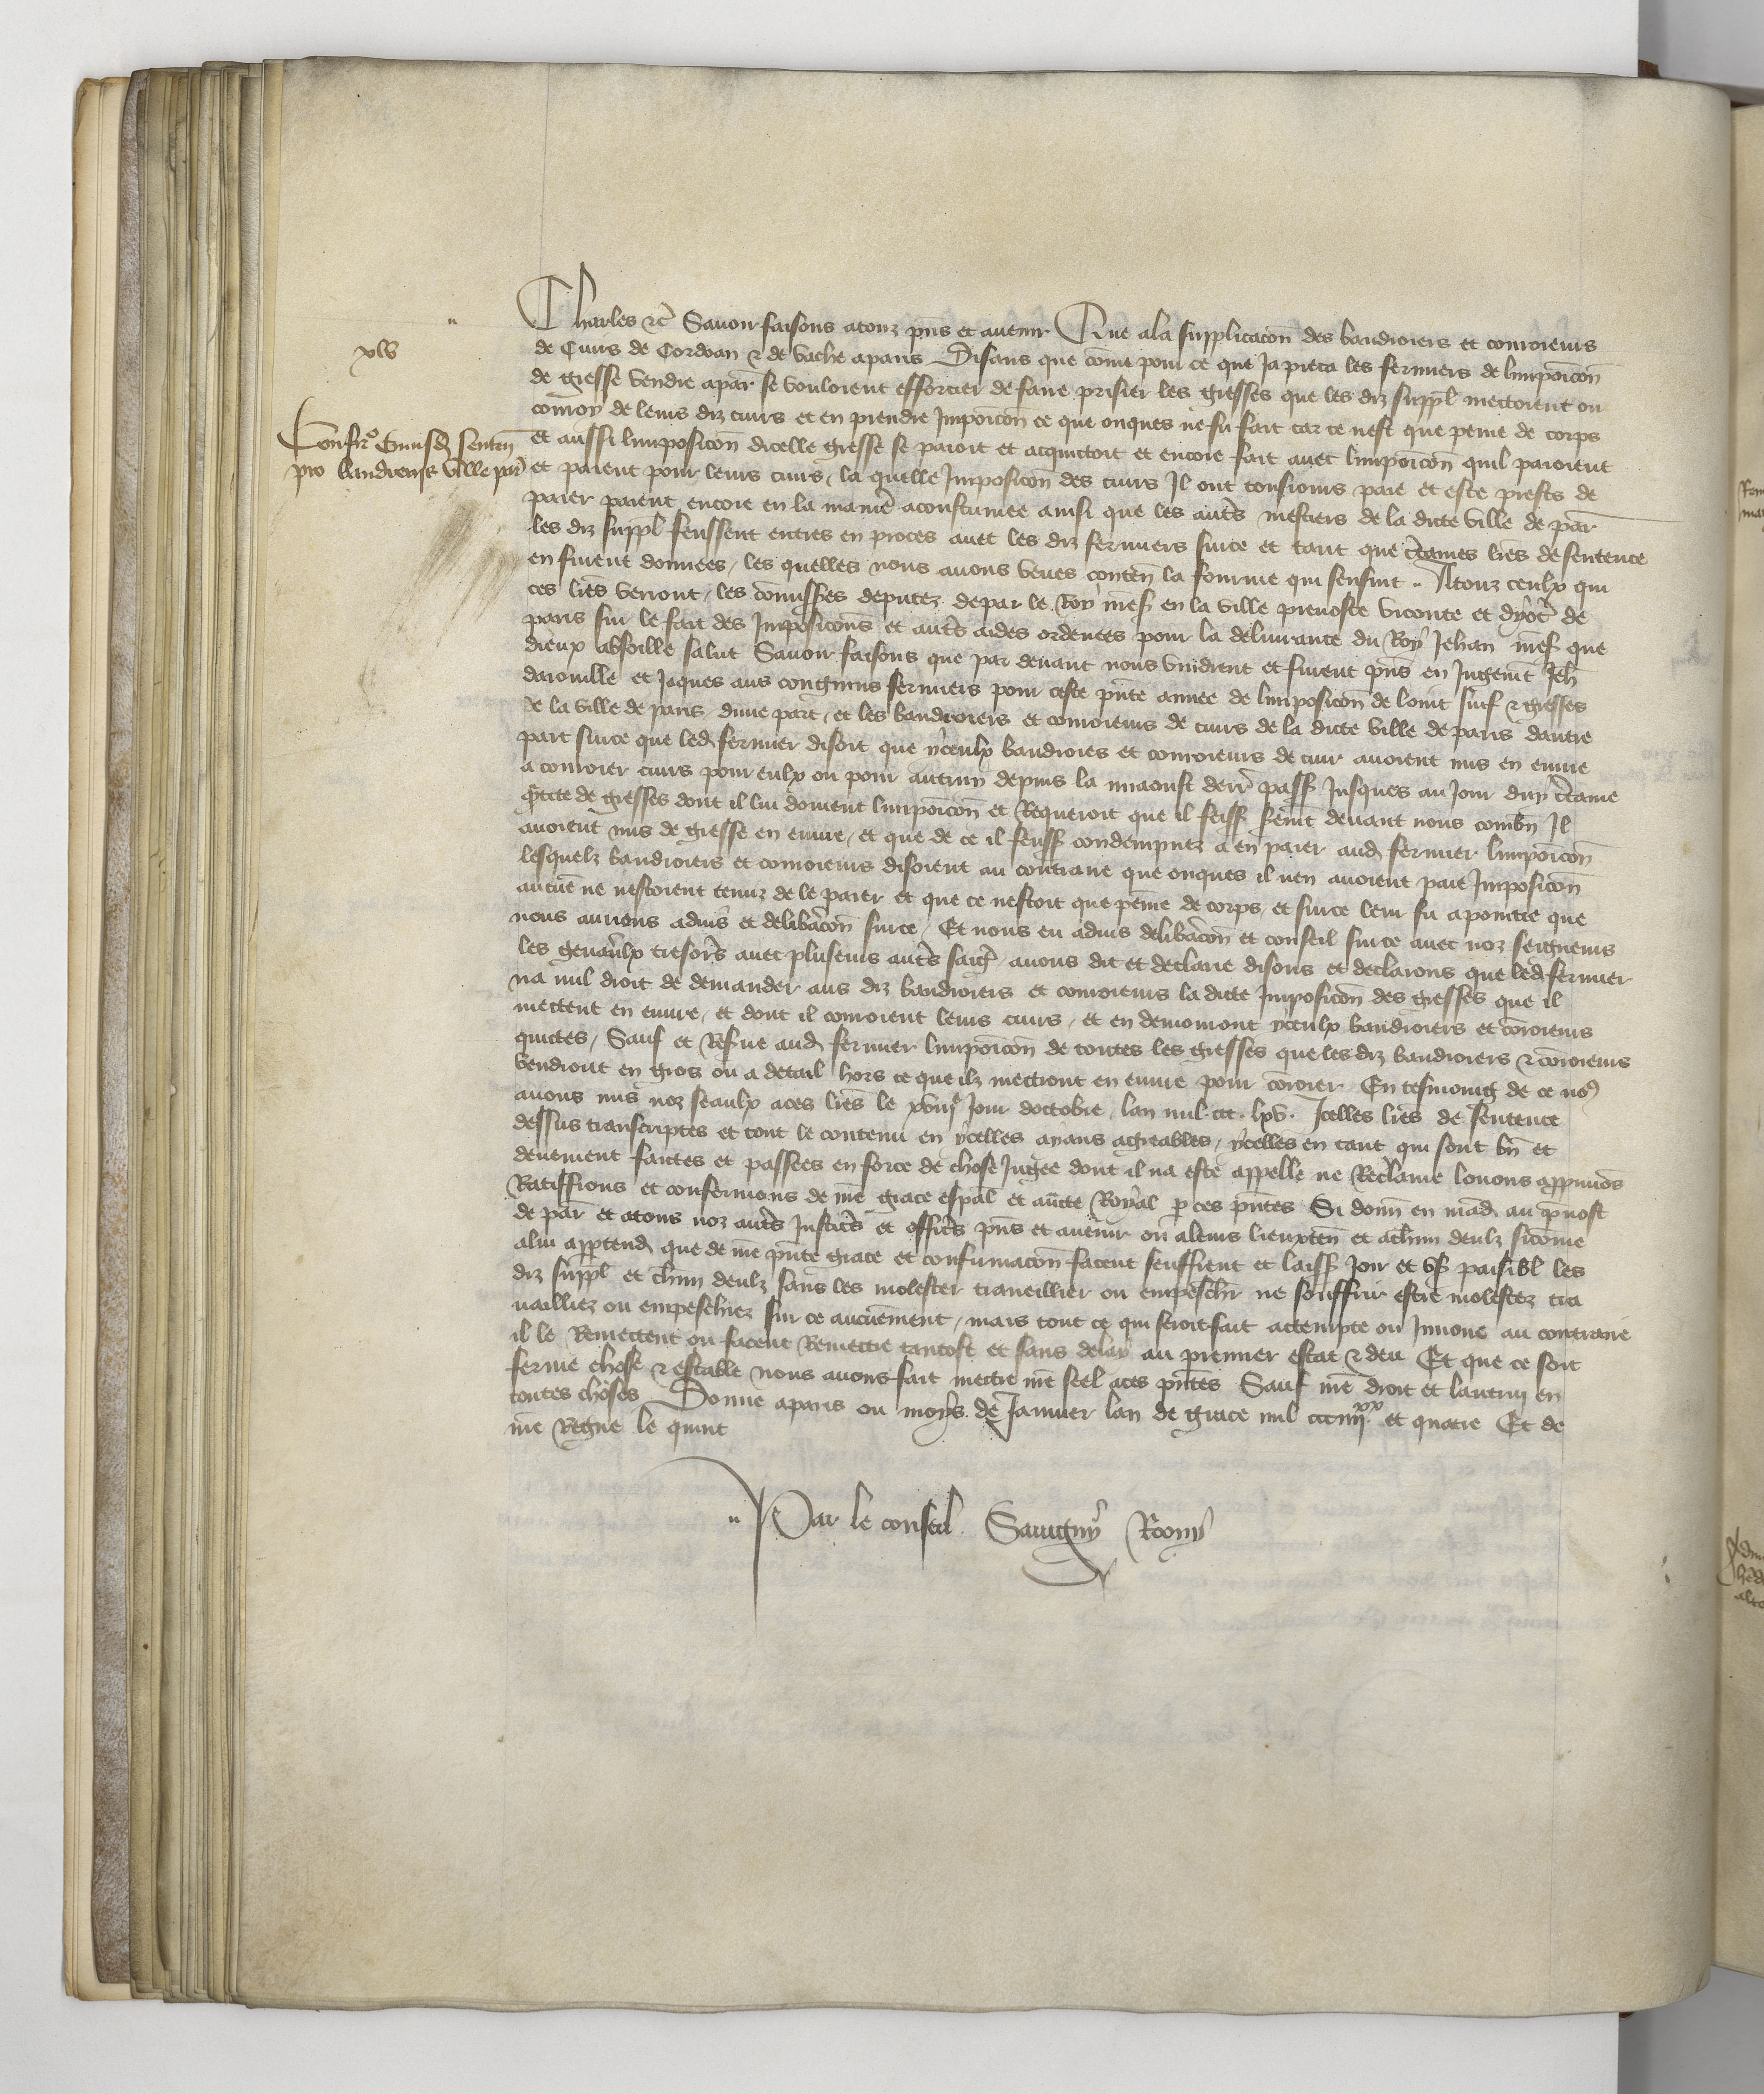 Charles etc̃ Sauoir faisons atouz pñs et auenir Que ala supplicacõn des baudroiers et conroieurs
xlv
de Cuirs de Cordoan & de vache aparis Disans que cõme pour ce que Ja pieca les fermiers de limpoicõn
de gresse vendre apar̃ se vouloient efforcier de faire prisier les gresses que les diz suppl̃ mectoient ou
conroy de leurs diz cuirs et en prendre Impoicõn ce que onques ne fu fait car ce nest que peine de corps
Confir̃o sentẽn
pro baudroeriis ville par̃
et aussi limposicõn dicelle gresse se paioit et acquictoit et encore fait auec limpoicõn quil paioient
et paient pour leurs cuirs, la quelle Imposicõn des cuirs Il ont tousiours paie et este prests de
paier paient encore en la manier̃ acoustumee ainsi que les autr̃s mestiers de la dicte ville de par̃
les diz suppl̃ feussent entres en proces auec les diz fermiers surce et tant que cẽtaines lr̃es de sentence
en furent donnees, les quelles nous auons veues conten̄ la fourme qui sensuit .. Atouz ceulx qui
ces lr̃es verront, les cõmissr̃es deputez depar le Roy nr̃es en la ville preuoste viconte et dyoc̃ de
paris sur le fait des Imposicõns et autr̃s aides ordenees pour la deliurance du Roy Jehan nr̃es que
dieux absoille salut Sauoir faisons que par deuant nous vindrent et furent pñs en Jugem̃t Jeh̃
darouille et Jaques aus congnins fermiers pour ceste pñte annee de limposicõn de loint suif & gresses
de la ville de paris, dune part, et les baudroiers et conroieurs de cuirs de la dicte ville de paris dautre
part surce que led̃ fermier disoit que yceulx baudroiers et conroieurs de cuir auoient mis en euure
a conroier cuirs pour eulx ou pour autruy depuis la miaoust derr̃ pass̃ Jusques au Jour duy cẽtaine
q̃tite de gresses dont il lui doiuent limpoicõn et Requeroit que il feiss̃ serm̃t deuant nous combñ Il
auoient mis de gresse en euure, et que de ce il feuss̃ condempnez a en paier aud̃ fermier limpoicõn
lesquelz baudroiers et conroieurs disoient au contraire que onques il nen auoient paie Imposicõn
aucune ne nestoient tenuz de le paier et que ce nestoit que peine de corps, et surce leur fu apointte que
nous aurions aduis et delibãcõn surce, Et nous eu aduis delibãcõn et conseil surce auec noz seigneurs
les genãulx tresor̃s auec pluseurs autr̃s saig̃ auons dit et declaire disons et declairons que led̃ fermier
na nul droit de demander aus diz baudroiers et conroieurs la dicte Imposicõn des gresses que il
mettent en euure, et dont il conroient leurs cuirs, et en demorront yceulx baudroiers et cõroieurs
quictes, Sauf et Res̃ue aud̃ fermier limpoicõn de toutes les gresses que les diz baudroiers & cõroieurs
vendront en gros ou a detail hors ce que ilz mectront en euure pour cõroier En tesmoing de ce no9
auons mis noz seaulx aces lr̃es le xviij.e Jour doctobre, lan mil. ccc. lxv. Jcelles lr̃es de sentence
dessus transcriptes et tout le contenu en ycelles aians agreables, ycelles en tant qui sont bñ et
deuement faictes et passees en force de chose Jugee dont il na este appelle ne Reclaime louons appuuõs
Ratiffions et confermons de nr̃e grace esp̃al et auct̃e Royal p̱ ces pñtes Si donñ en mãd̃ au p̃uost
de par̃ et atous noz autr̃s Justicr̃s et offic̃rs pñs et auenir ou aleurs lieuxteñ et ach̃un deulz sicõme
alui app̱tend̃ que de nr̃e pñte grace et confirmacõn facent seuffrent et laiss̃ Joir et vs̃ paisibl̃ les
diz suppl̃ et ch̃un deulz sans les molester trauaillier ou empeschr̃ ne souffrir estre molestez tra
uailliez ou empeschiez sur ce aucunement, mais tout ce qui seroit fait attempte ou Jnnoue au contraire
il le Remettent ou facent Remettre tantost et sans delay au premier estat & deu Et que ce soit
ferme chose & estable nous auons fait mettre nr̃e seel aces pñtes Sauf nr̃e droit et lautruy en
toutes choses Donne aparis ou moys de Januier lan de grace mil ccciiij.xx et quatre Et de
nr̃e Regne le quint
.. Par le conseil Sauigny Rony